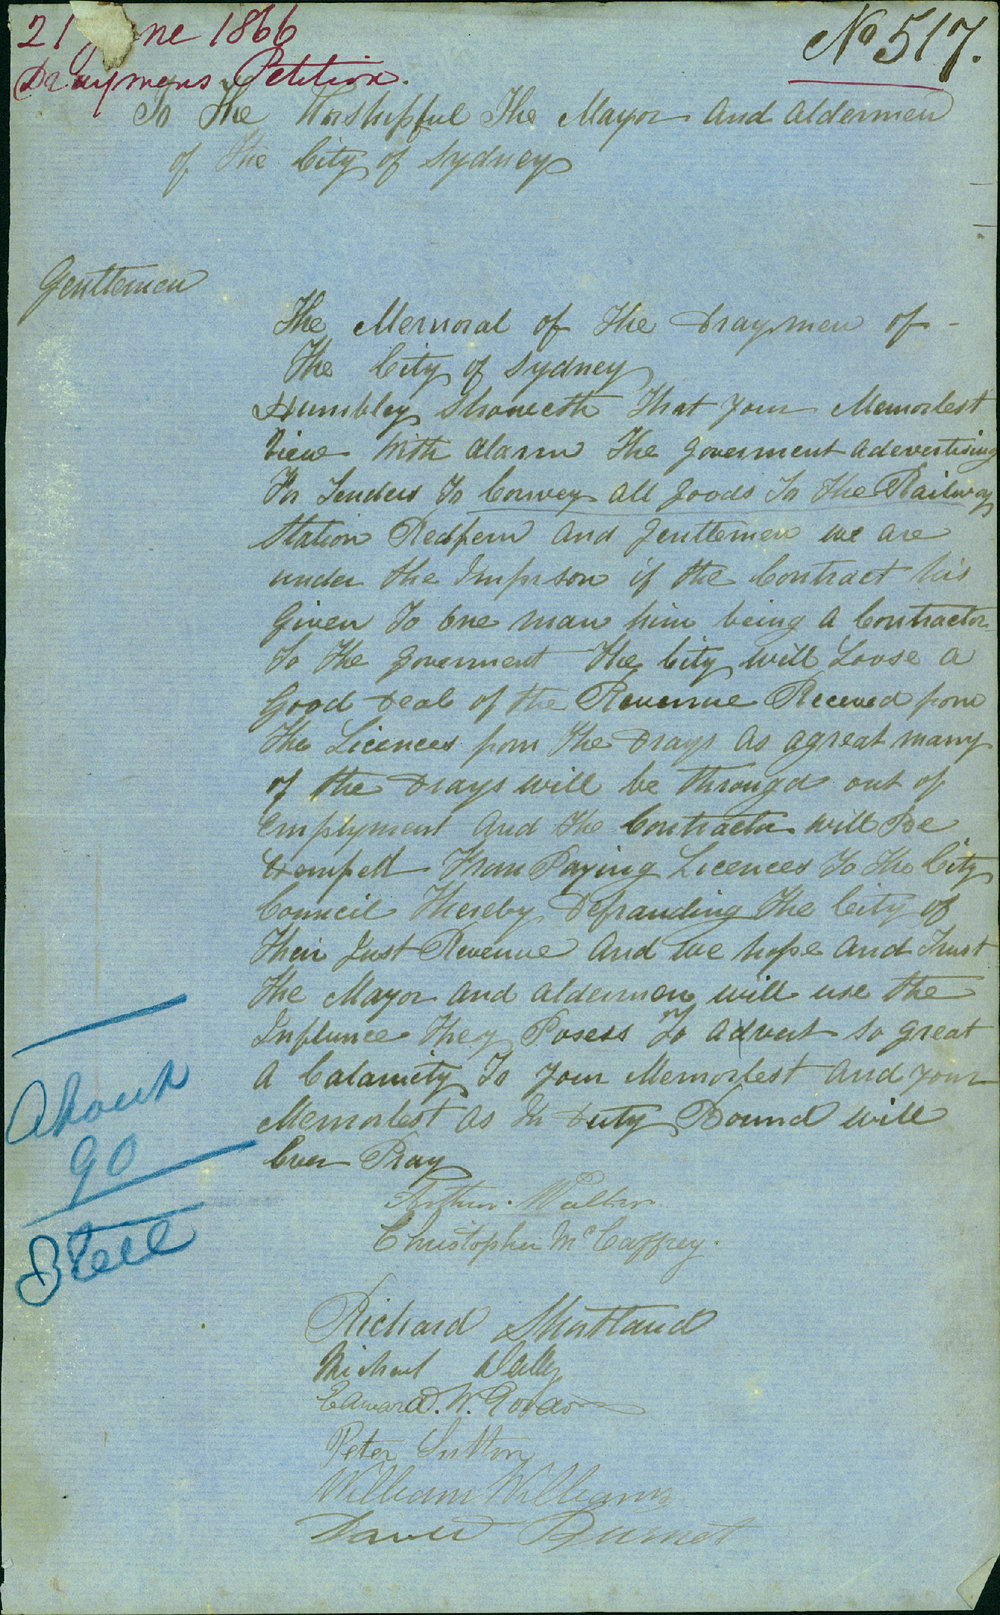 21 June 1866
No 517.
Draymens Petition.
To The Worshipful The Mayor and Aldermen
of The City of Sydney
Gentlemen
The Memoral of the Draymen of -
The City of Sydney
Humbley Showeth That your Memorlest
View With Alarm The goverment adevertising
For Tenders To Convey all goods To the Railway
Station Redfern and gentlemen we are
under the Imprson if the Contract his
given To one man him being a Contractor
To The goverment The City will Loose a
good deal of the Revenue Received from
The Licences from The Drays as agreat many
of the Drays will be througd out of
employment and the Contractor will Be
Exempett From Paying Licences To the City
Council Thereby Defrauding The City of
Their Just Revenue and we hope and Trust
The Mayor and Aldermen will use the
Influnce They Posess To advert so great
a Calamity To your Memorlest and your
Memorlest as In Duty Bound will
Ever Pray
Arthur Walker
Christopher McCaffrey.
Richard Shortland
Michael Dally
Edward. W.
Peter Sutton
William Williams
David Burnet
About
90